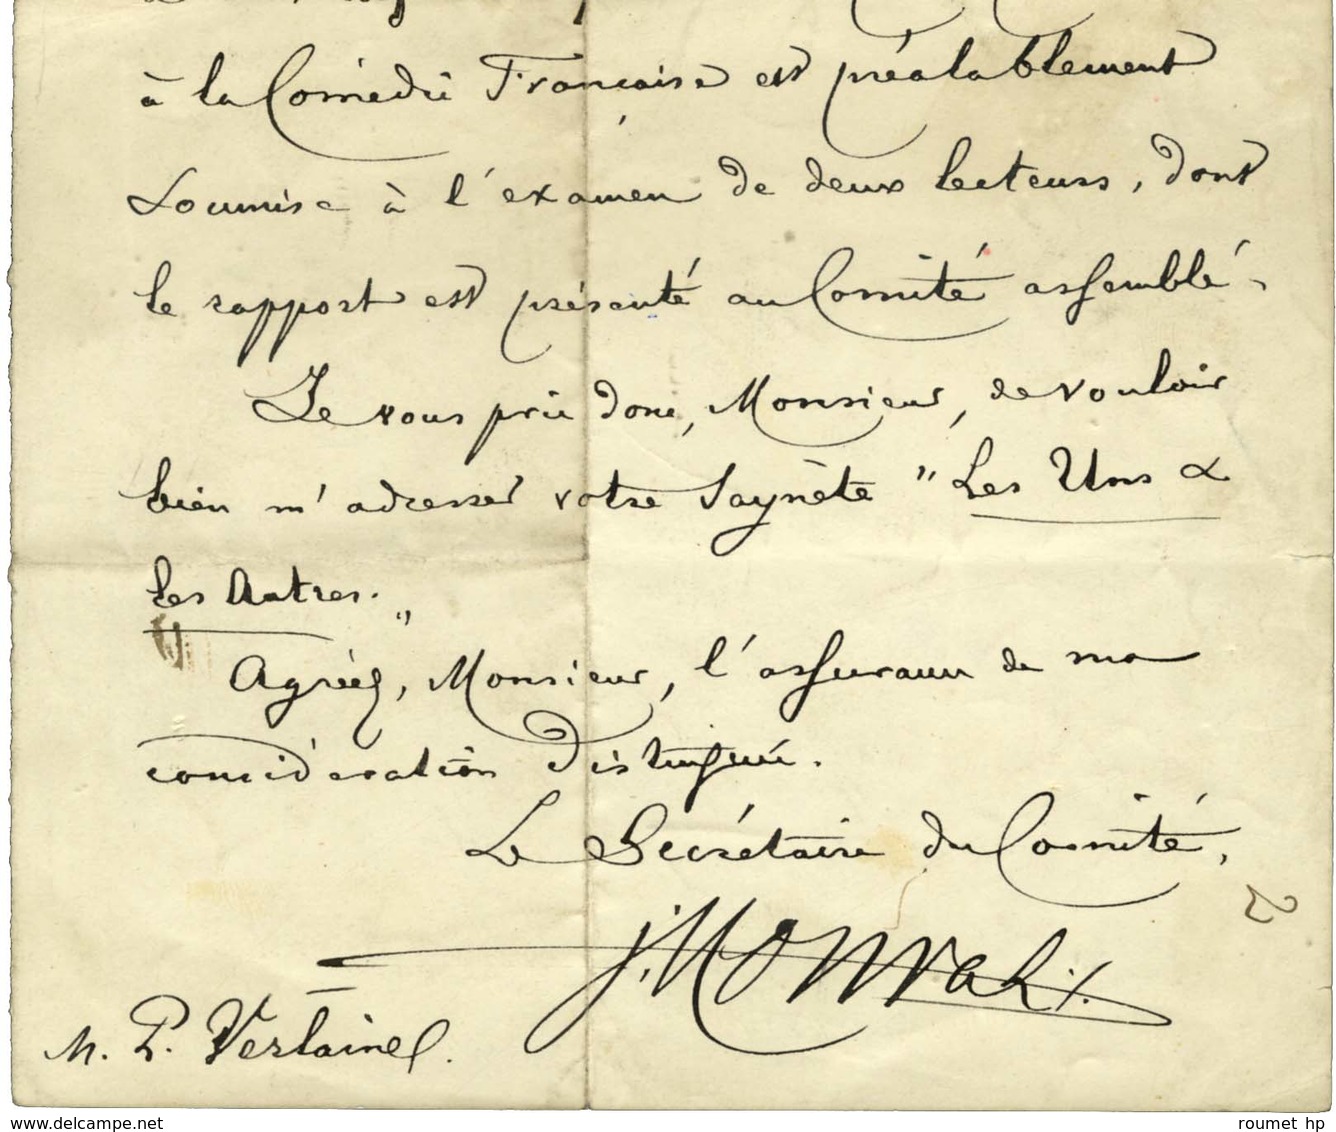 à la Comédie Française est préalablement
soumise à l'examen de deux lecteurs, dont
le rapport est présenté au Comité assemblé.
Je vous prie donc, Monsieur, de vouloir
bien m'adresser votre Saynète "Les Uns &
les Autres."
Agréez, Monsieur, l'assurance de ma
considération distinguée.
Le Secrétaire du Comité,
J. Monval
2
M. P. Verlaine.
www.delcampe.net
roumet hp